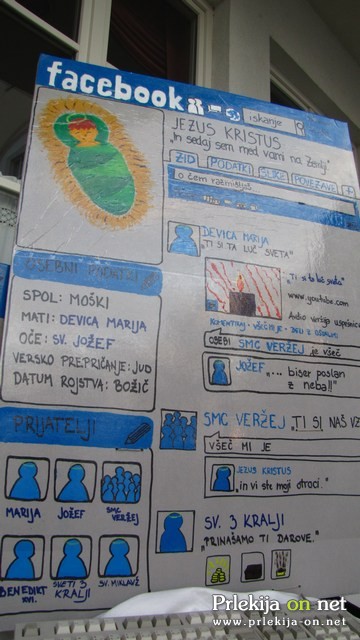 facebook
iskanje
JEZUS KRISTUS
"In sedaj sem med vami na Zemlji"
ZID PODATKI SLIKE POVEZAVE +
o čem razmišljaš
OSEBNI PODATKI
SPOL: MOŠKI
MATI: DEVICA MARIJA
OČE: SV. JOŽEF
VERSKO PREPRIČANJE: JUD
DATUM ROJSTVA: BOŽIČ
PRIJATELJI
MARIJA
JOŽEF
SMC VERŽEJ
BENEDIKT XVI.
SVETI 3 KRALJI
SV. MIKLAVŽ
DEVICA MARIJA
"TI SI TA LUČ SVETA"
"Ti si ta luč sveta"
www.youtube.com
SMC VERŽEJ je všeč
JOŽEF "... biser poslan
z neba!!"
SMC VERŽEJ "TI SI NAŠ
VŠEČ MI JE
JEZUS KRISTUS
"in vi ste moji otroci."
SV. 3 KRALJI
"PRINAŠAMO TI DAROVE."
Prlekija on net
www.prlekija-on.net